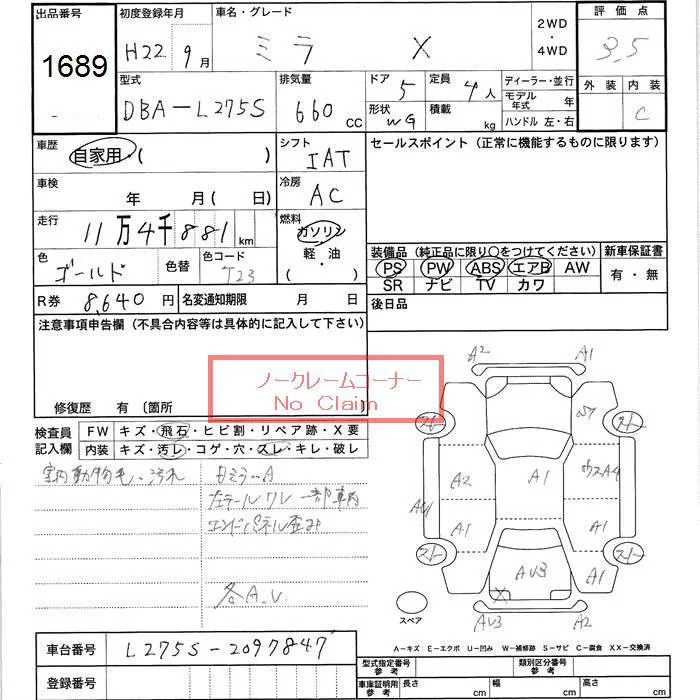 出品番号
1689
初度登録年月
H22 9月
車名・グレード
ミラ X
2WD
・
4WD
評価点
3.5
外装 内装
C
型式
DBA-L275S
排気量
660 CC
ドア 5
形状 WG
定員 4人
積載 kg
ディーラー・並行
モデル年式 年
ハンドル 左・右
車歴
自家用・( )
シフト
IAT
セールスポイント(正常に機能するものに限ります)
車検
年 月( 日)
冷房
AC
走行
11万4千881km
燃料
ガソリン
軽・油
( )
色
ゴールド
色替
色コード
T23
装備品(純正品に限り○をつけてください)
PS PW ABS エアB AW
SR ナビ TV カワ
新車保証書
有・無
R券 8,640円
名変通知期限 月 日
後日品
注意事項申告欄(不具合内容等は具体的に記入して下さい)
ノークレームコーナー
No Claim
修復歴 有〔箇所
検査員
記入欄
FW キズ・飛石・ヒビ割・リペア跡・X要
内装 キズ・汚レ・コゲ・穴・スレ・キレ・破レ
室内動物毛、汚れ
左テールワレ 一部車内
エンドパネル歪み
各A.U.
A2 A1
A2 A1
A1 AU3 A1 A1
AU3 A2
スペア
A-キズ E-エクボ U-凹み W-補修跡 S-サビ C-腐食 XX-交換済
車台番号 L275S-2097847
登録番号
型式指定番号
参考
類別区分番号
参考
車庫証明用
参考
長さ cm 幅 cm 高さ cm